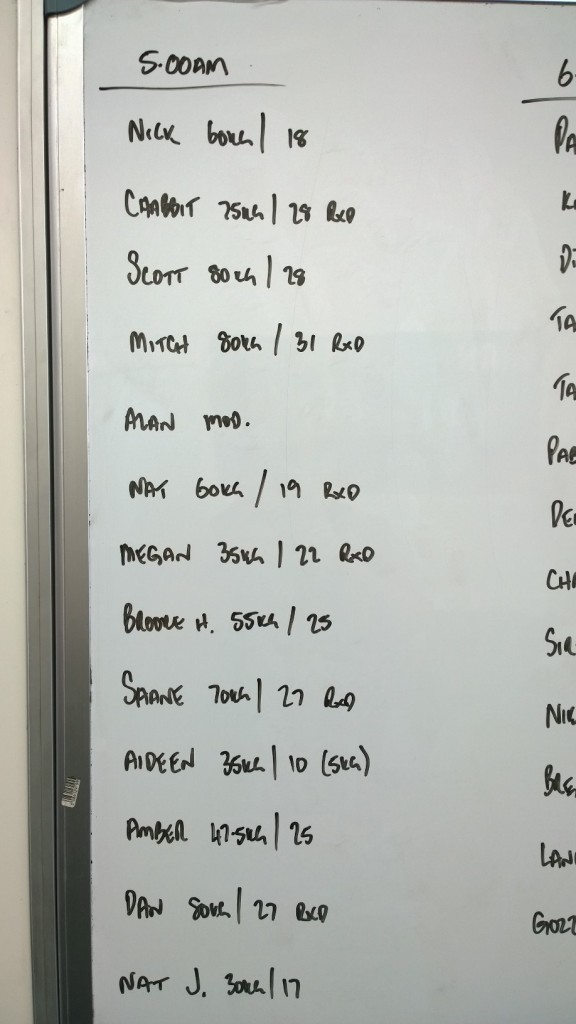 5.00AM
NICK 60KG / 18
CRABBIT 75KG / 28 RXD
SCOTT 80KG / 28
MITCH 80KG / 31 RXD
ALAN MOD.
NAT 60KG / 19 RXD
MEGAN 35KG / 22 RXD
BROOKE H. 55KG / 25
SHANE 70KG / 27 RXD
AIDEEN 35KG / 10 (5KG)
AMBER 47.5KG / 25
DAN 80KG / 27 RXD
NAT J. 30KG / 17
6-
PA
K
DI
TA
TA
PAE
DE
CHA
SIR
NIC
BRE
LAN
GOZZ